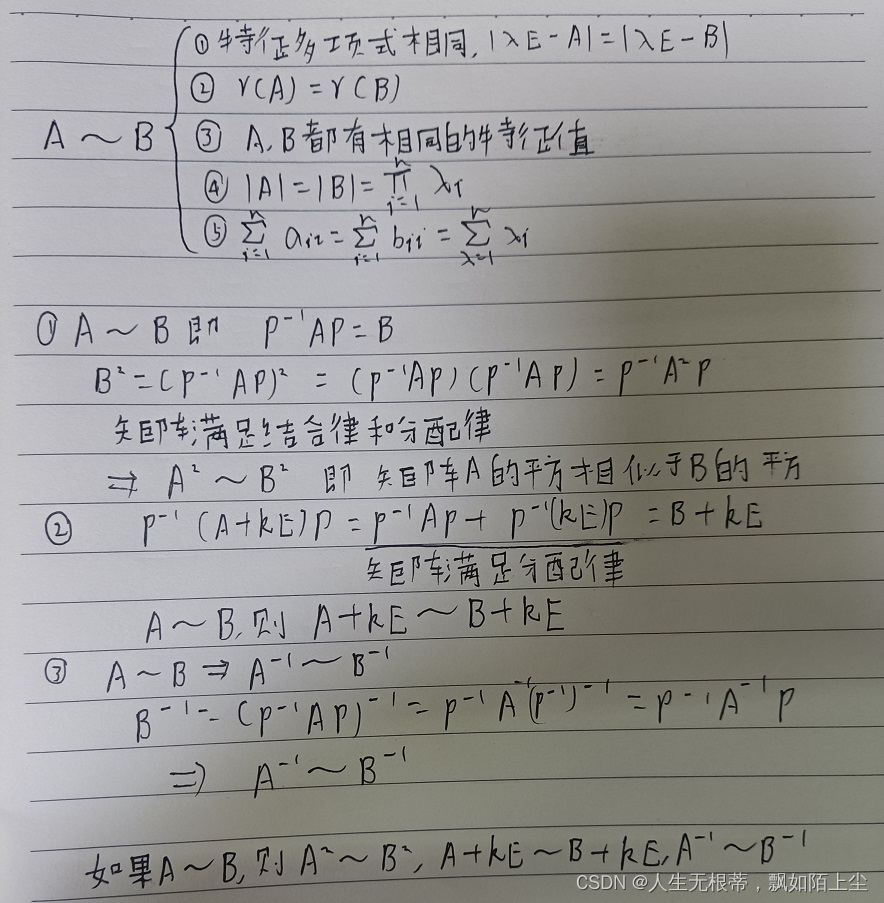 ① 特征多项式相同, |λE-A|=|λE-B|
② r(A)=r(B)
A~B { ③ A,B都有相同的特征值
④ |A|=|B|=∏ⁿᵢ₌₁ λᵢ
⑤ ∑ⁿᵢ₌₁ aᵢᵢ=∑ⁿᵢ₌₁ bᵢᵢ=∑ⁿλ₌₁ λᵢ
① A~B 即 P⁻¹AP=B
B²=(P⁻¹AP)²=(P⁻¹AP)(P⁻¹AP)=P⁻¹A²P
矩阵满足结合律和分配律
⇒ A²~B² 即 矩阵A的平方相似于B的平方
② P⁻¹(A+kE)P=P⁻¹AP+P⁻¹(kE)P=B+kE
矩阵满足分配律
A~B,则 A+kE~B+kE
③ A~B⇒A⁻¹~B⁻¹
B⁻¹=(P⁻¹AP)⁻¹=P⁻¹A⁻¹(P⁻¹)⁻¹=P⁻¹A⁻¹P
⇒ A⁻¹~B⁻¹
如果A~B,则A²~B², A+kE~B+kE,A⁻¹~B⁻¹
CSDN @人生无根蒂，飘如陌上尘